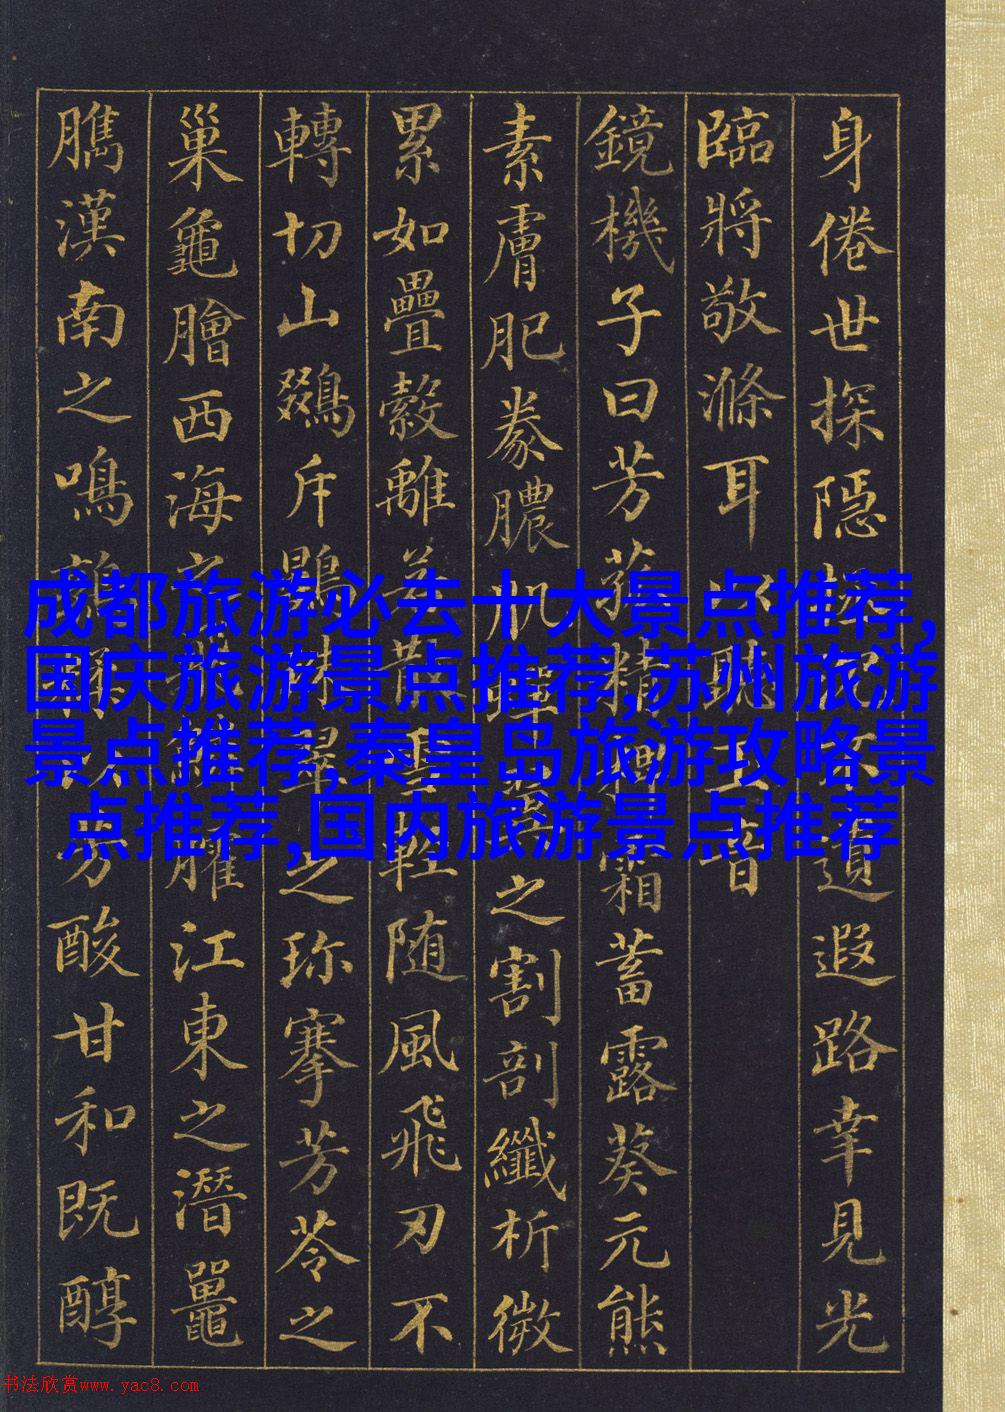 身倦世探隱拯沉不遺遐路幸見光
臨將敬滌耳以聽玉音
鏡機子曰芳菰精粺霜蓄露葵元熊
素膚肥豢膿肌蟬翼之割剖纖析微
累如疊縠離若散雪輕随風飛刃不
轉切山鵽斥鷃珠翠之珎搴芳苓之
巢龜膾西海之飛鱗臛江東之潛鼉
臇漢南之鳴鶉糅以芳酸甘和既醇
成都旅游必去十大景点推荐,
国庆旅游景点推荐,苏州旅游
景点推荐,秦皇岛旅游攻略景
点推荐,国内旅游景点推荐
书法欣赏www.yac8.com